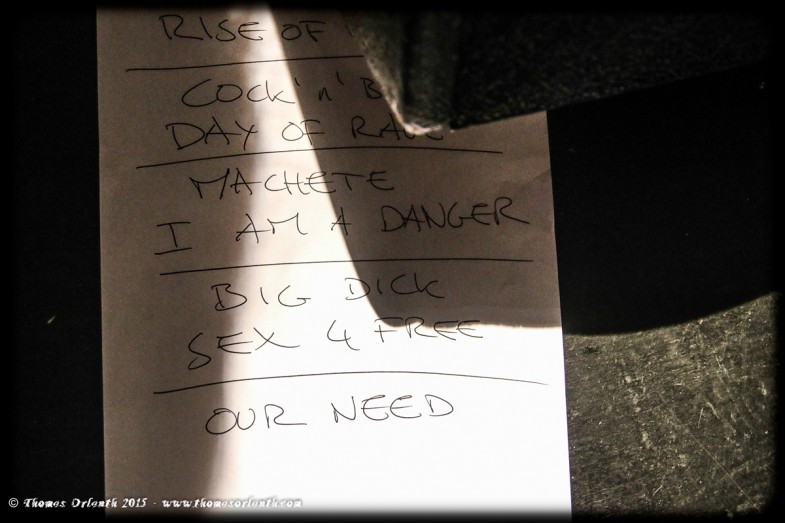 RISE OF
COCK 'n'
DAY OF
MACHETE
I AM A DANGER
BIG DICK
SEX 4 FREE
OUR NEED
© Thomas Orlenth 2015 - www.thomasorlenth.com